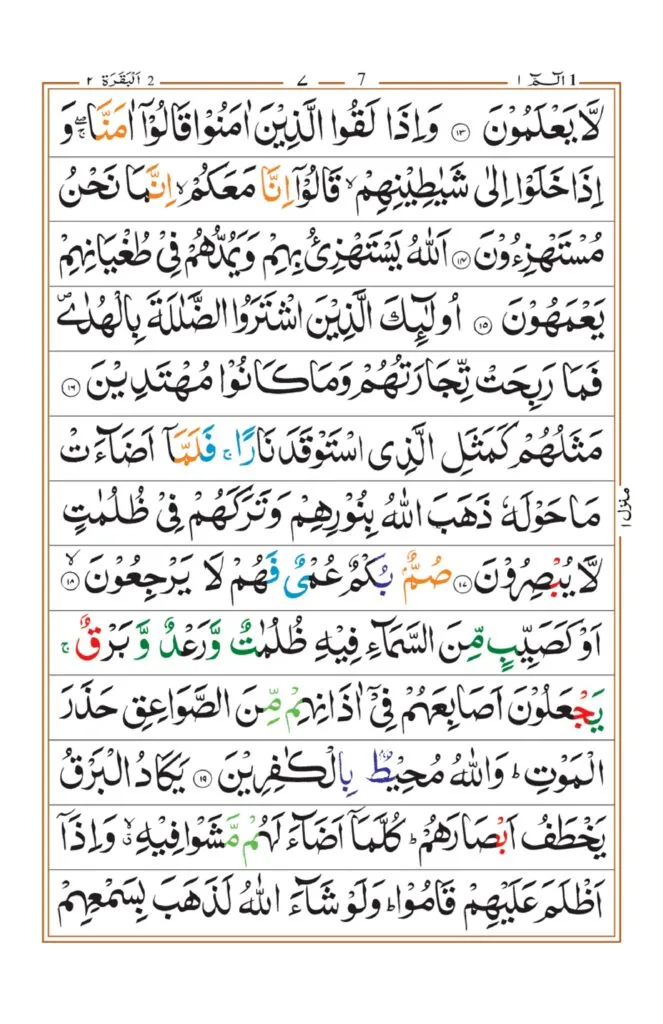 الٓمّٓ ١ 1 7 ٧ 2 اَلْبَقَرَة ٢
لَّا يَعْلَمُوْنَ ۝١٣ وَاِذَا لَقُوا الَّذِيْنَ اٰمَنُوْا قَالُوْٓا اٰمَنَّا ۖۚ وَ
اِذَا خَلَوْا اِلٰى شَيٰطِيْنِهِمْ ۙ قَالُوْٓا اِنَّا مَعَكُمْ ۙ اِنَّمَا نَحْنُ
مُسْتَهْزِءُوْنَ ۝١٤ اَللّٰهُ يَسْتَهْزِئُ بِهِمْ وَيَمُدُّهُمْ فِيْ طُغْيَانِهِمْ
يَعْمَهُوْنَ ۝١٥ اُولٰٓئِكَ الَّذِيْنَ اشْتَرَوُا الضَّلٰلَةَ بِالْهُدٰى ۪
فَمَا رَبِحَتْ تِّجَارَتُهُمْ وَمَا كَانُوْا مُهْتَدِيْنَ ۝١٦
مَثَلُهُمْ كَمَثَلِ الَّذِى اسْتَوْقَدَ نَارًا ۚ فَلَمَّآ اَضَآءَتْ
مَا حَوْلَهٗ ذَهَبَ اللّٰهُ بِنُوْرِهِمْ وَتَرَكَهُمْ فِيْ ظُلُمٰتٍ
لَّا يُبْصِرُوْنَ ۝١٧ صُمٌّۢ بُكْمٌ عُمْيٌ فَهُمْ لَا يَرْجِعُوْنَ ۝١٨ ۙ
اَوْ كَصَيِّبٍ مِّنَ السَّمَآءِ فِيْهِ ظُلُمٰتٌ وَّرَعْدٌ وَّبَرْقٌ ۚ
يَجْعَلُوْنَ اَصَابِعَهُمْ فِيْٓ اٰذَانِهِمْ مِّنَ الصَّوَاعِقِ حَذَرَ
الْمَوْتِ ؕ وَاللّٰهُ مُحِيْطٌۢ بِالْكٰفِرِيْنَ ۝١٩ يَكَادُ الْبَرْقُ
يَخْطَفُ اَبْصَارَهُمْ ؕ كُلَّمَآ اَضَآءَ لَهُمْ مَّشَوْا فِيْهِ ۙۗ وَاِذَآ
اَظْلَمَ عَلَيْهِمْ قَامُوْا ؕ وَلَوْ شَآءَ اللّٰهُ لَذَهَبَ بِسَمْعِهِمْ
منزل ١